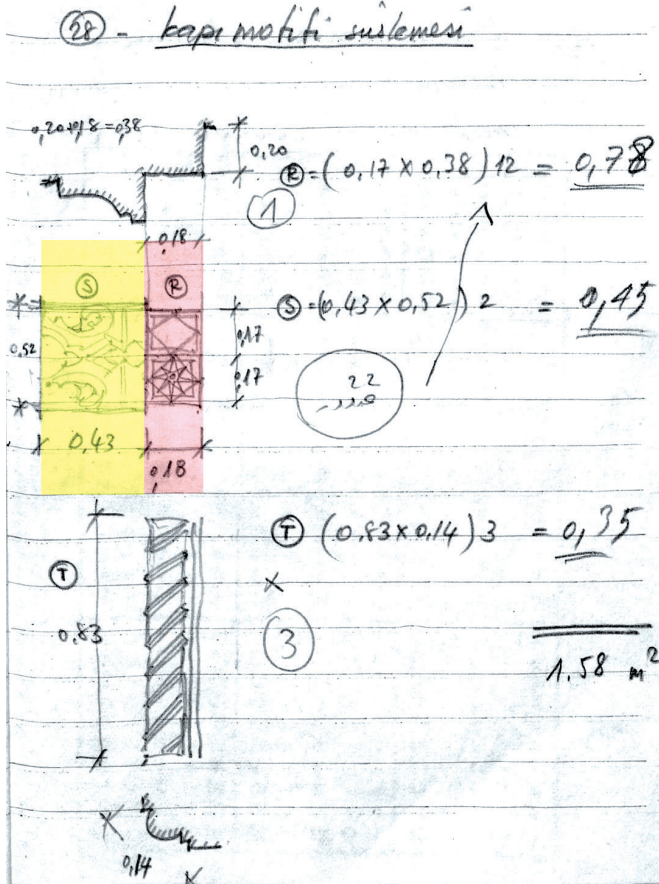 28 - kapı motifi süslemesi
0,20+0,18=0,38
0,20
R = (0,17 x 0,38) 12 = 0,78
1
0,18
S
R
S = (0,43 x 0,52) 2 = 0,45
0,52
0,17
0,17
22
0,43
0,18
T (0.83 x 0.14) 3 = 0,35
T
x
0,83
3
1.58 m²
0,14